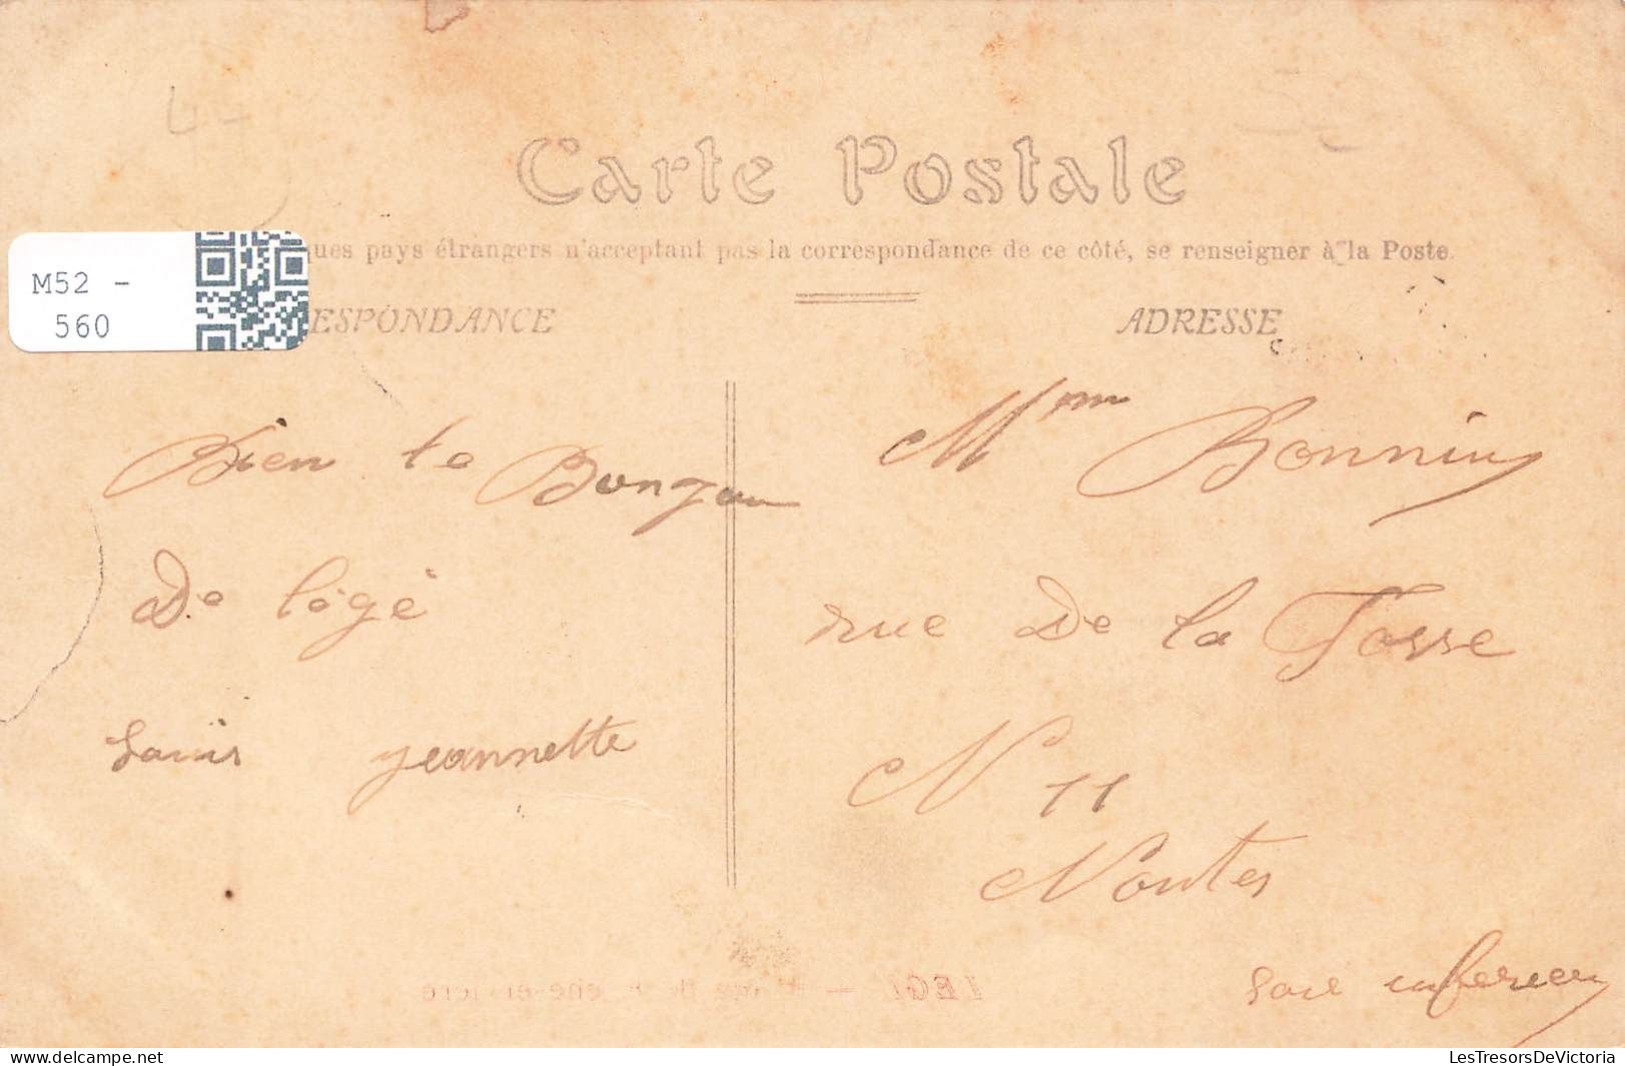 Carte Postale
ques pays étrangers n'acceptant pas la correspondance de ce côté, se renseigner à la Poste.
M52 -
560
ESPONDANCE
ADRESSE
Bien le Bonjou
De légé
Louis jeannette
Mme Bonnin
rue De la Fosse
N 11
Nantes
Loire inferieu
LesTresorsDeVictoria
M52-560